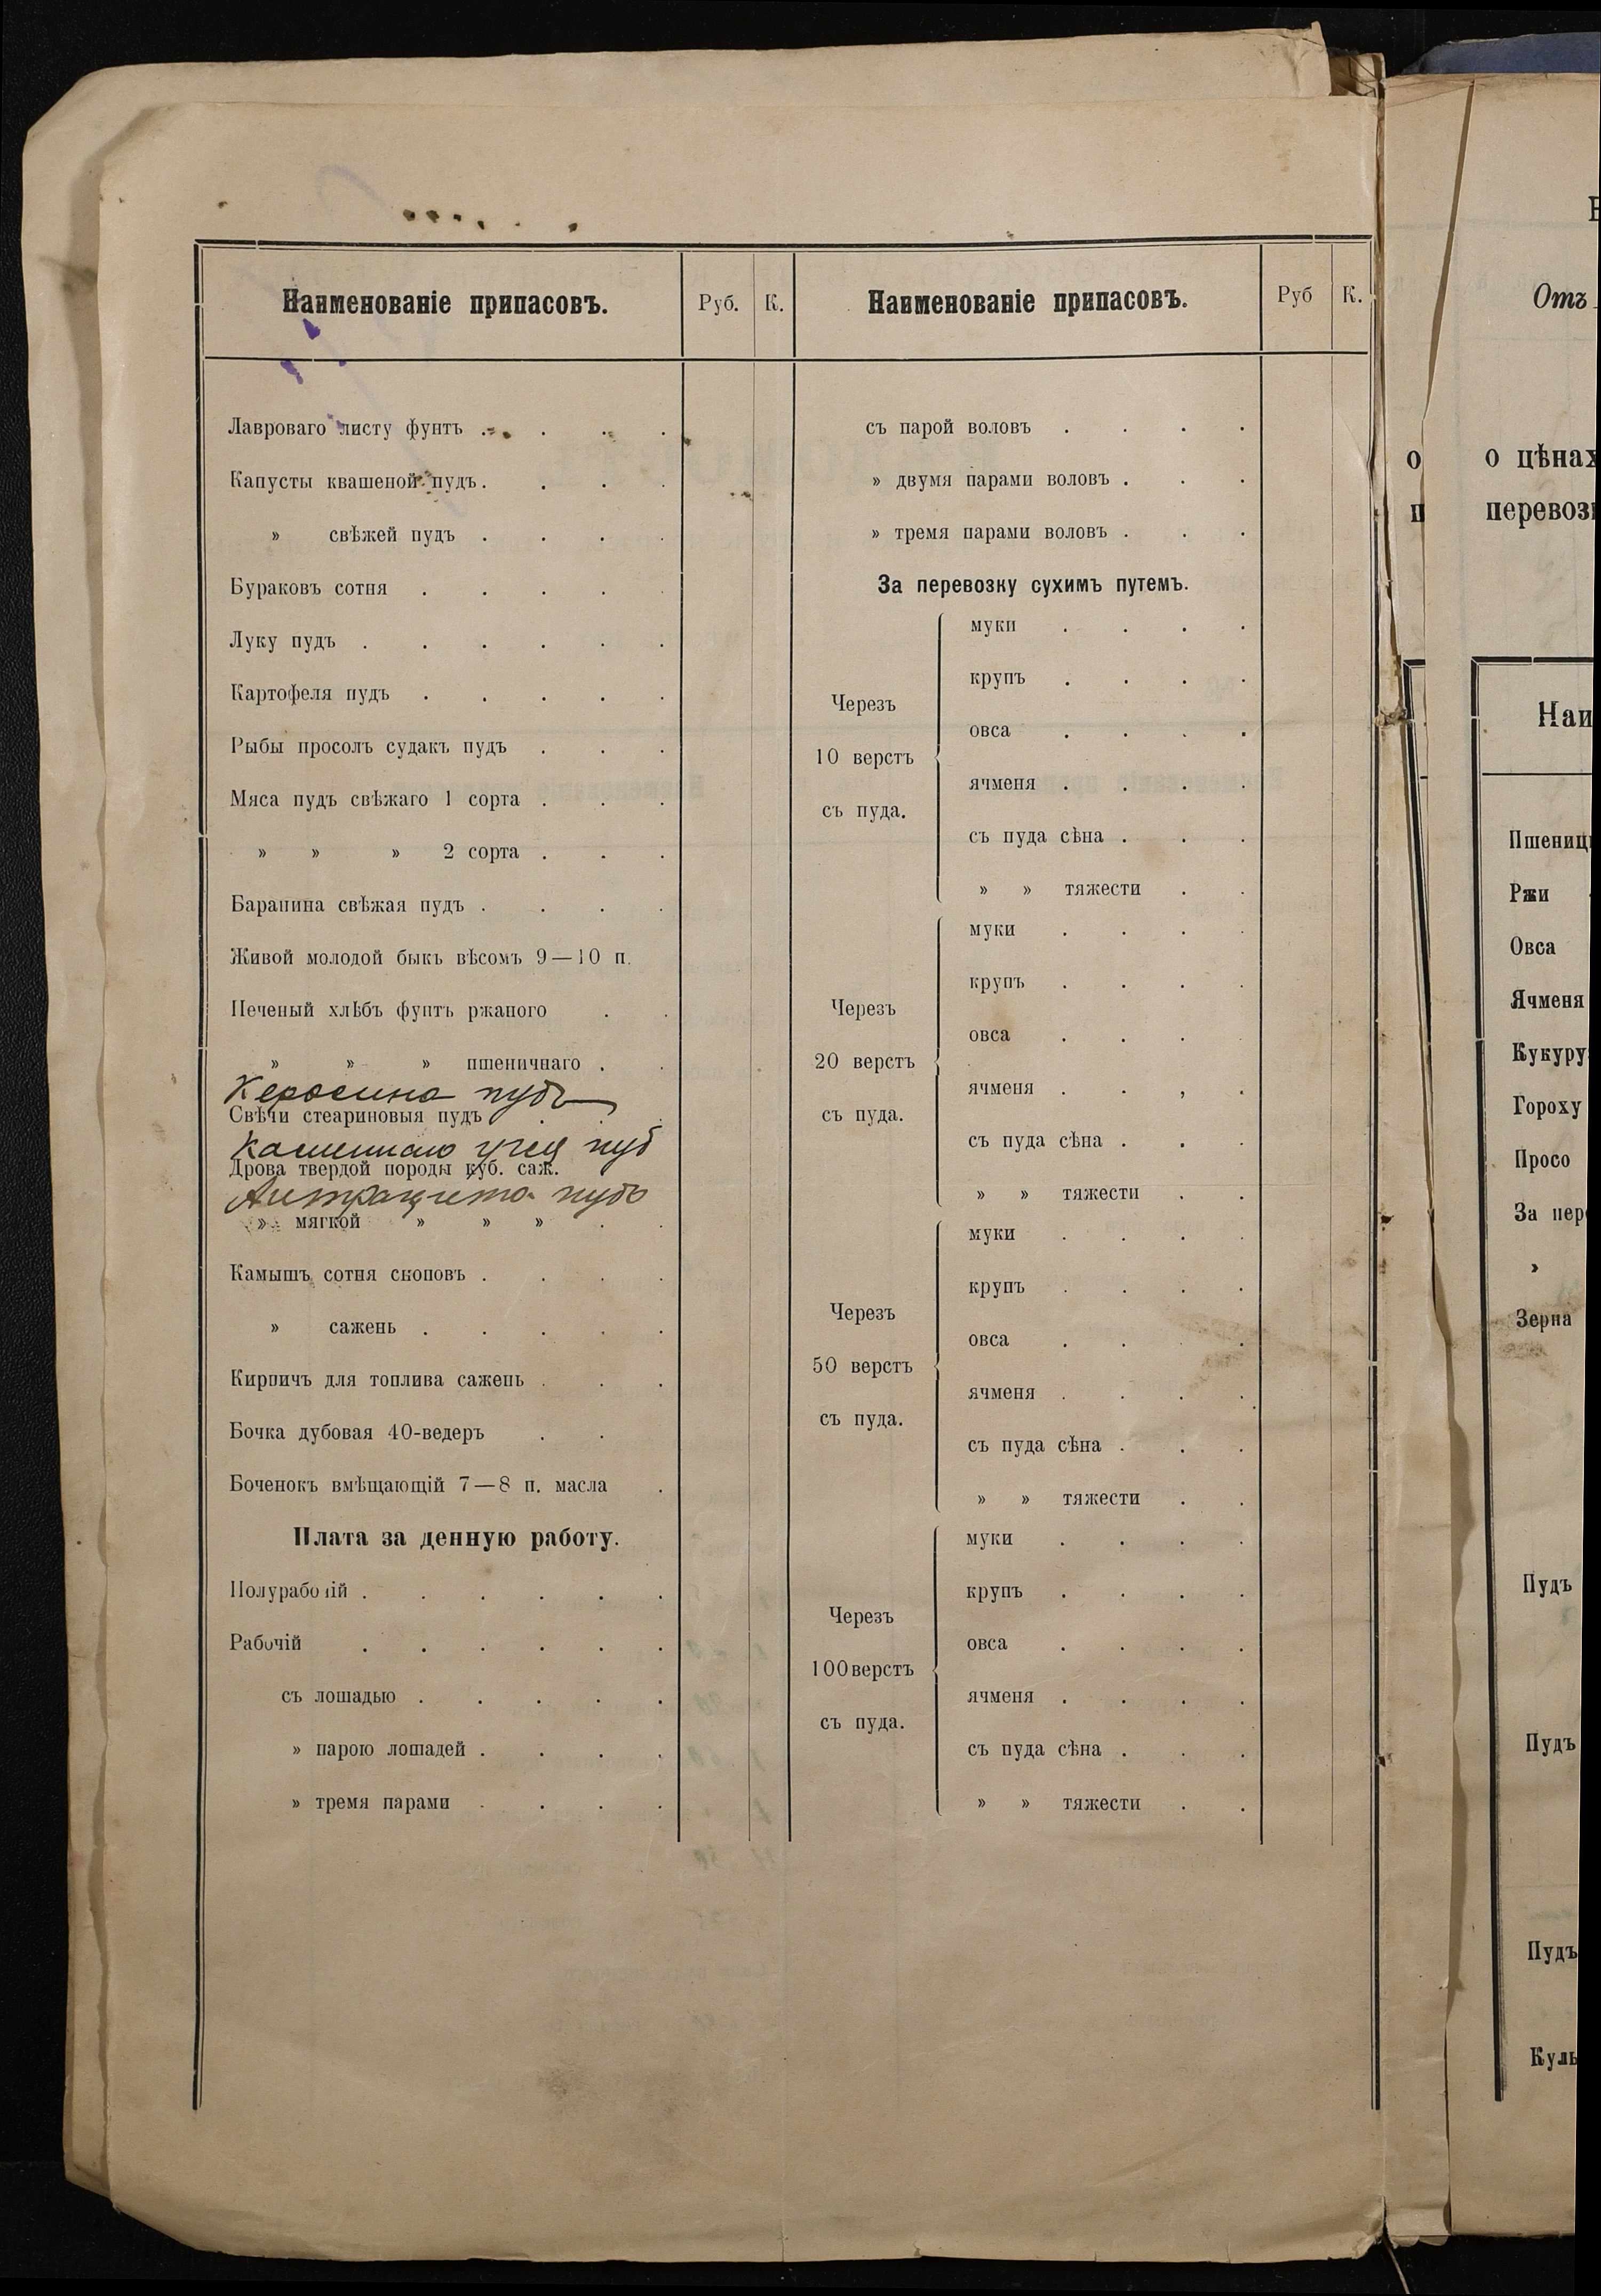 Наименованіе припасовъ.
Руб.
К.
Лавроваго листу фунтъ . . . .
Капусты квашеной пудъ . . . .
» свѣжей пудъ . . . .
Бураковъ сотня . . . . .
Луку пудъ . . . . . .
Картофеля пудъ . . . . .
Рыбы просолъ судакъ пудъ . . .
Мяса пудъ свѣжаго 1 сорта . . .
» » » 2 сорта . . .
Баранина свѣжая пудъ . . . .
Живой молодой быкъ вѣсомъ 9—10 п.
Печеный хлѣбъ фунтъ ржаного . .
» » » пшеничнаго . .
Керосина пудъ
Свѣчи стеариновыя пудъ . . .
Каменнаго угля пуд
Дрова твердой породы куб. саж.
Антрацита пудъ
» мягкой » » » . .
Камышъ сотня сноповъ . . . .
» сажень . . . . .
Кирпичъ для топлива сажень . . .
Бочка дубовая 40-ведеръ . .
Боченокъ вмѣщающій 7—8 п. масла .
Плата за денную работу.
Полурабочій . . . . . .
Рабочій . . . . . .
съ лошадью . . . . .
» парою лошадей . . . .
» тремя парами . . . .
Наименованіе припасовъ.
Руб
К.
съ парой воловъ . . . .
» двумя парами воловъ . . .
» тремя парами воловъ . . .
За перевозку сухимъ путемъ.
Черезъ
10 верстъ
съ пуда.
муки . . . .
крупъ . . . .
овса . . . .
ячменя . . . .
съ пуда сѣна . . .
» » тяжести . .
Черезъ
20 верстъ
съ пуда.
муки . . . .
крупъ . . . .
овса . . .
ячменя . . , .
съ пуда сѣна . . .
» » тяжести . .
Черезъ
50 верстъ
съ пуда.
муки . . . .
крупъ . . . .
овса . . . .
ячменя . . . .
съ пуда сѣна . . .
» » тяжести . .
Черезъ
100 верстъ
съ пуда.
муки . . . .
крупъ . . . .
овса . . . .
ячменя . . . .
съ пуда сѣна . . .
» » тяжести . .
Отъ
о цѣнах
перевоз
Наи
Пшениц
Ржи
Овса
Ячменя
Кукуру
Гороху
Просо
За пер
»
Зерна
Пудъ
Пудъ
Пудъ
Куль